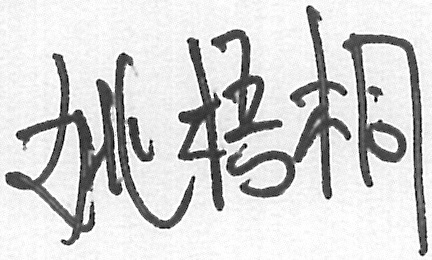 姚梧桐